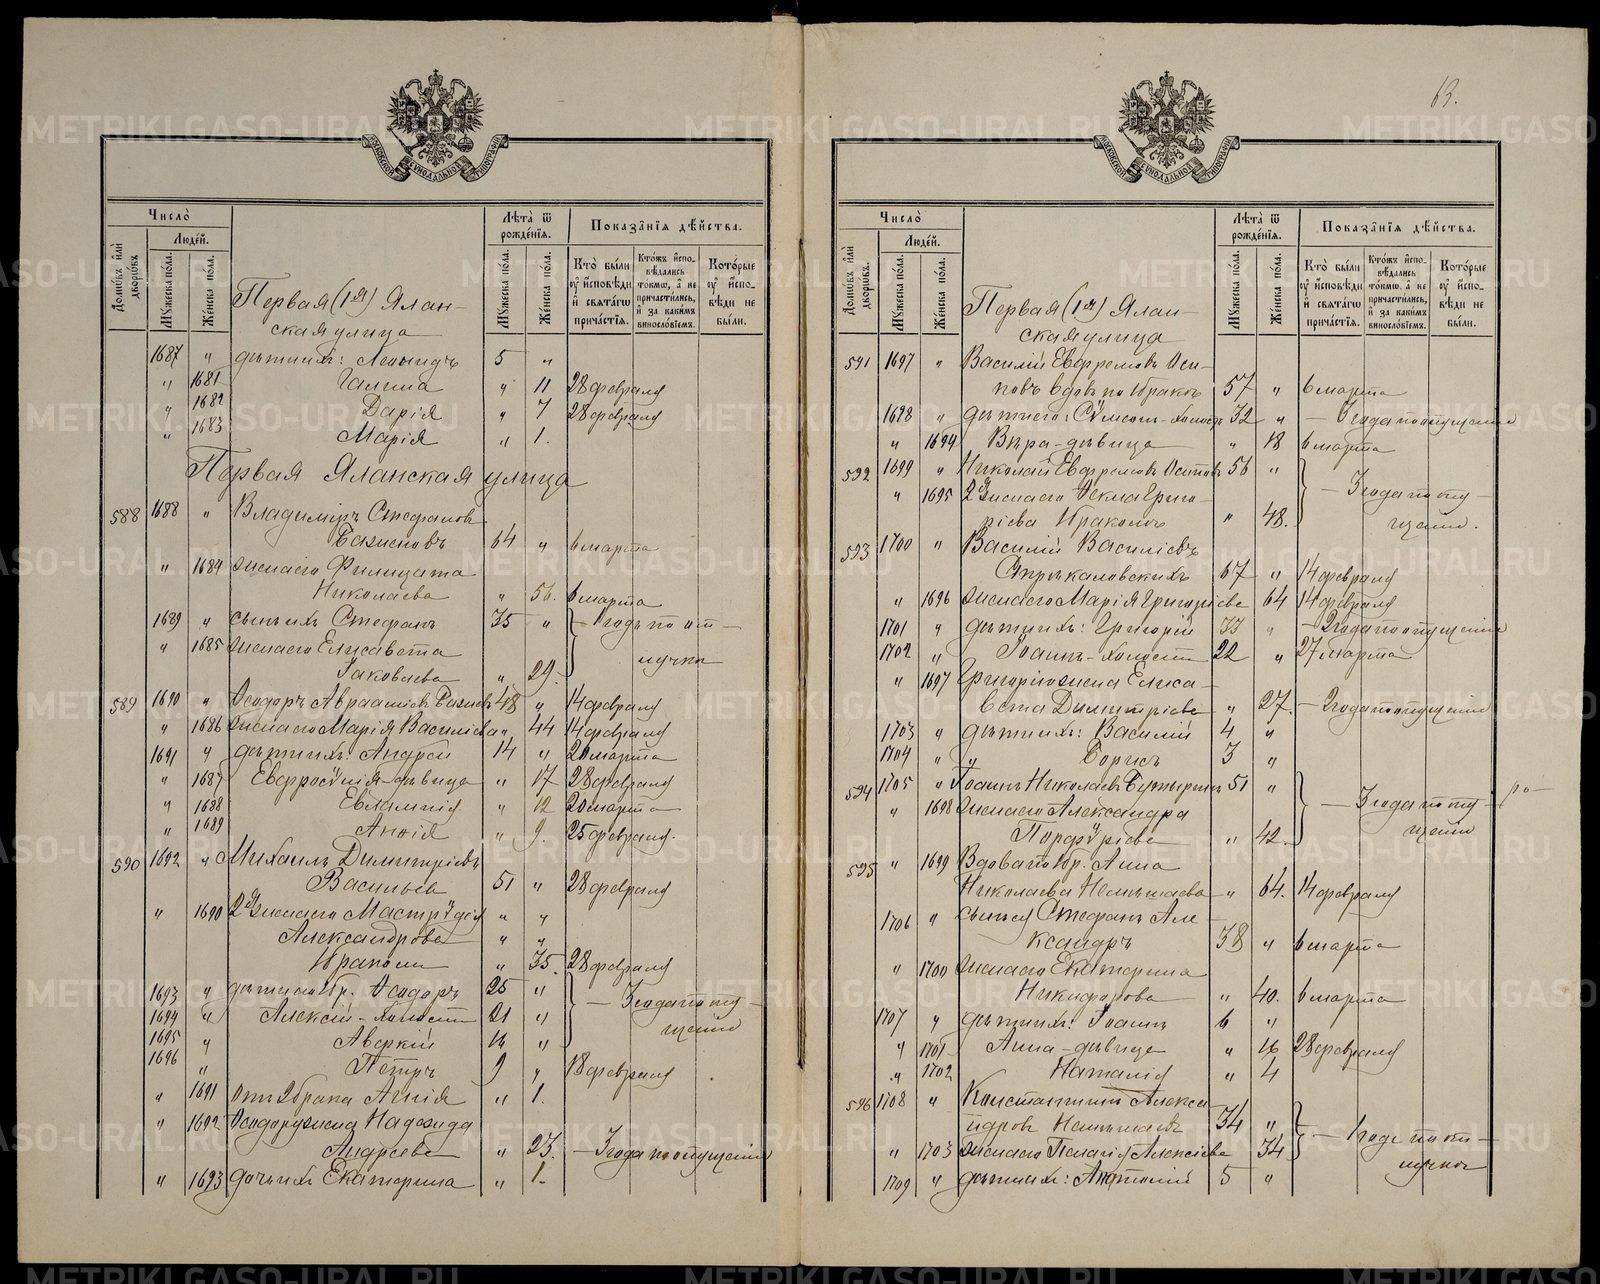 63.
МОСКОВСКОЙ СѴНОДАЛЬНОЙ ТИПОГРАФІИ
Число̀
Людє́й.
Домѡ́въ и҆лѝ дворѡ́въ.
Мꙋ́жеска по́ла.
Же́нска по́ла.
Лѣта̀ ѿ рожде́нїѧ.
Мꙋ́жеска по́ла.
Же́нска по́ла.
Показа̑нїѧ дѣ́йства.
Кто̀ бы́ли ᲂу҆ и҆́сповѣди и҆ свѧта́гѡ прича́стїѧ.
Кто́жъ и҆спо-вѣ́дались то́кмѡ, а҆ не причасти́лись, и҆ за каки́мъ виносло́вїемъ.
Кото́рые ᲂу҆ и҆спо-вѣди не бы́ли.
Первая (1я) Ялан-
ская улица
1687 " дѣти их: Леонидъ 5 "
" 1681 Галина " 11 28 февраля
" 1682 Дарія " 7 28 февраля
" 1683 Марія " 1.
Первая Яланская улица
588 1688 " Владиміръ Стефановъ
64 " 6 марта
" 1684 жена его Филицата
Николаева " 56. 6 марта
1689 " сынъ их Стефанъ 35 " — 1 годъ по от —
" 1685 жена его Елисавета лучки
Іаковлева " 29.
589 1690 " Ѳеодоръ Аврааміевъ 48 " 14 февраля
" 1686 жена его Марія Василіева " 44 14 февраля
1691 " дѣти их: Андрей 14 " 20 марта
" 1687 Евфросѵнія-дѣвица " 17 28 февраля
" 1688 Евлампія " 12 20 марта
" 1689 Агнія " 9. 25 февраля.
590 1692 " Михаилъ Димитріевъ
Васильевъ 51 " 28 февраля
" 1690 2я жена его " "
Александрова " "
" 35. 28 февраля
1693 " Ѳеодоръ 25 " — 3 года по опу —
1694 " Алексій-холостъ 21 " щенію
1695 " Аверкій "
1696 " Петръ 9 " 18 февраля
" 1691 от 2 брака Агнія " 1.
" 1692 Ѳеодора жена Надежда
Андреева " 23. — 3 года по опущенію
" 1693 дочь их Екатерина " 1.
Число̀
Людє́й.
Домѡ́въ и҆лѝ дворѡ́въ.
Мꙋ́жеска по́ла.
Же́нска по́ла.
Лѣта̀ ѿ рожде́нїѧ.
Мꙋ́жеска по́ла.
Же́нска по́ла.
Показа̑нїѧ дѣ́йства.
Кто̀ бы́ли ᲂу҆ и҆́сповѣди и҆ свѧта́гѡ прича́стїѧ.
Кто́жъ и҆спо-вѣ́дались то́кмѡ, а҆ не причасти́лись, и҆ за каки́мъ виносло́вїемъ.
Кото́рые ᲂу҆ и҆спо-вѣди не бы́ли.
Первая (1я) Ялан-
ская улица
591 1697 " Василій Евфремовъ Оси-
повъ вдовъ по 57 " 6 марта
1698 " дѣти его: Сѵмеонъ-холостъ 32 " — 3 года по опущенію
" 1694 Вѣра-дѣвица " 18 6 марта
592 1699 " Николай Евфремовъ Осиповъ 56 " — 3 года по опу —
" 1695 2я жена его Ѳекла Григо- щенію.
ріева " 48.
593 1700 " Василій Василіевъ
Стрѣкаловскихъ 67 " 14 февраля
" 1696 жена его Марія Григоріева 64 14 февраля
1701 " дѣти их: Григорій 33 " — 2 года по опущенію
1702 " Іоаннъ-холостъ 22 " 27 марта
" 1697 Григорія жена Елиса-
вета Димитріева " 27. — 2 года по опущенію
1703 " дѣти их: Василій 4 "
1704 " " Борисъ 3 "
594 1705 " Іоаннъ Николаевъ Бутыринъ 51 " — 3 года по опу —
" 1698 жена его Александра щенію
Порфѵріева " 42.
595 " 1699 Вдова по Анна
Николаева Немѣшаева " 64. 14 февраля
1706 " сынъ ея Стефанъ Але-
ксандръ 38 " 6 марта
" 1700 жена его Екатерина
Никифорова " 40. 6 марта
1707 " дѣти их: Іоаннъ 6 "
" 1701 Анна-дѣвица " 16 28 февраля
" 1702 Наталія " 4
596 1708 " Константинъ Алекса-
ндровъ Немѣшаевъ 34 " — 1 годъ по от —
" 1703 жена его Пелагія Алексіева 34 лучкѣ
1709 " дѣти их: Анатолій 5 "
METRIKI.GASO-URAL.RU